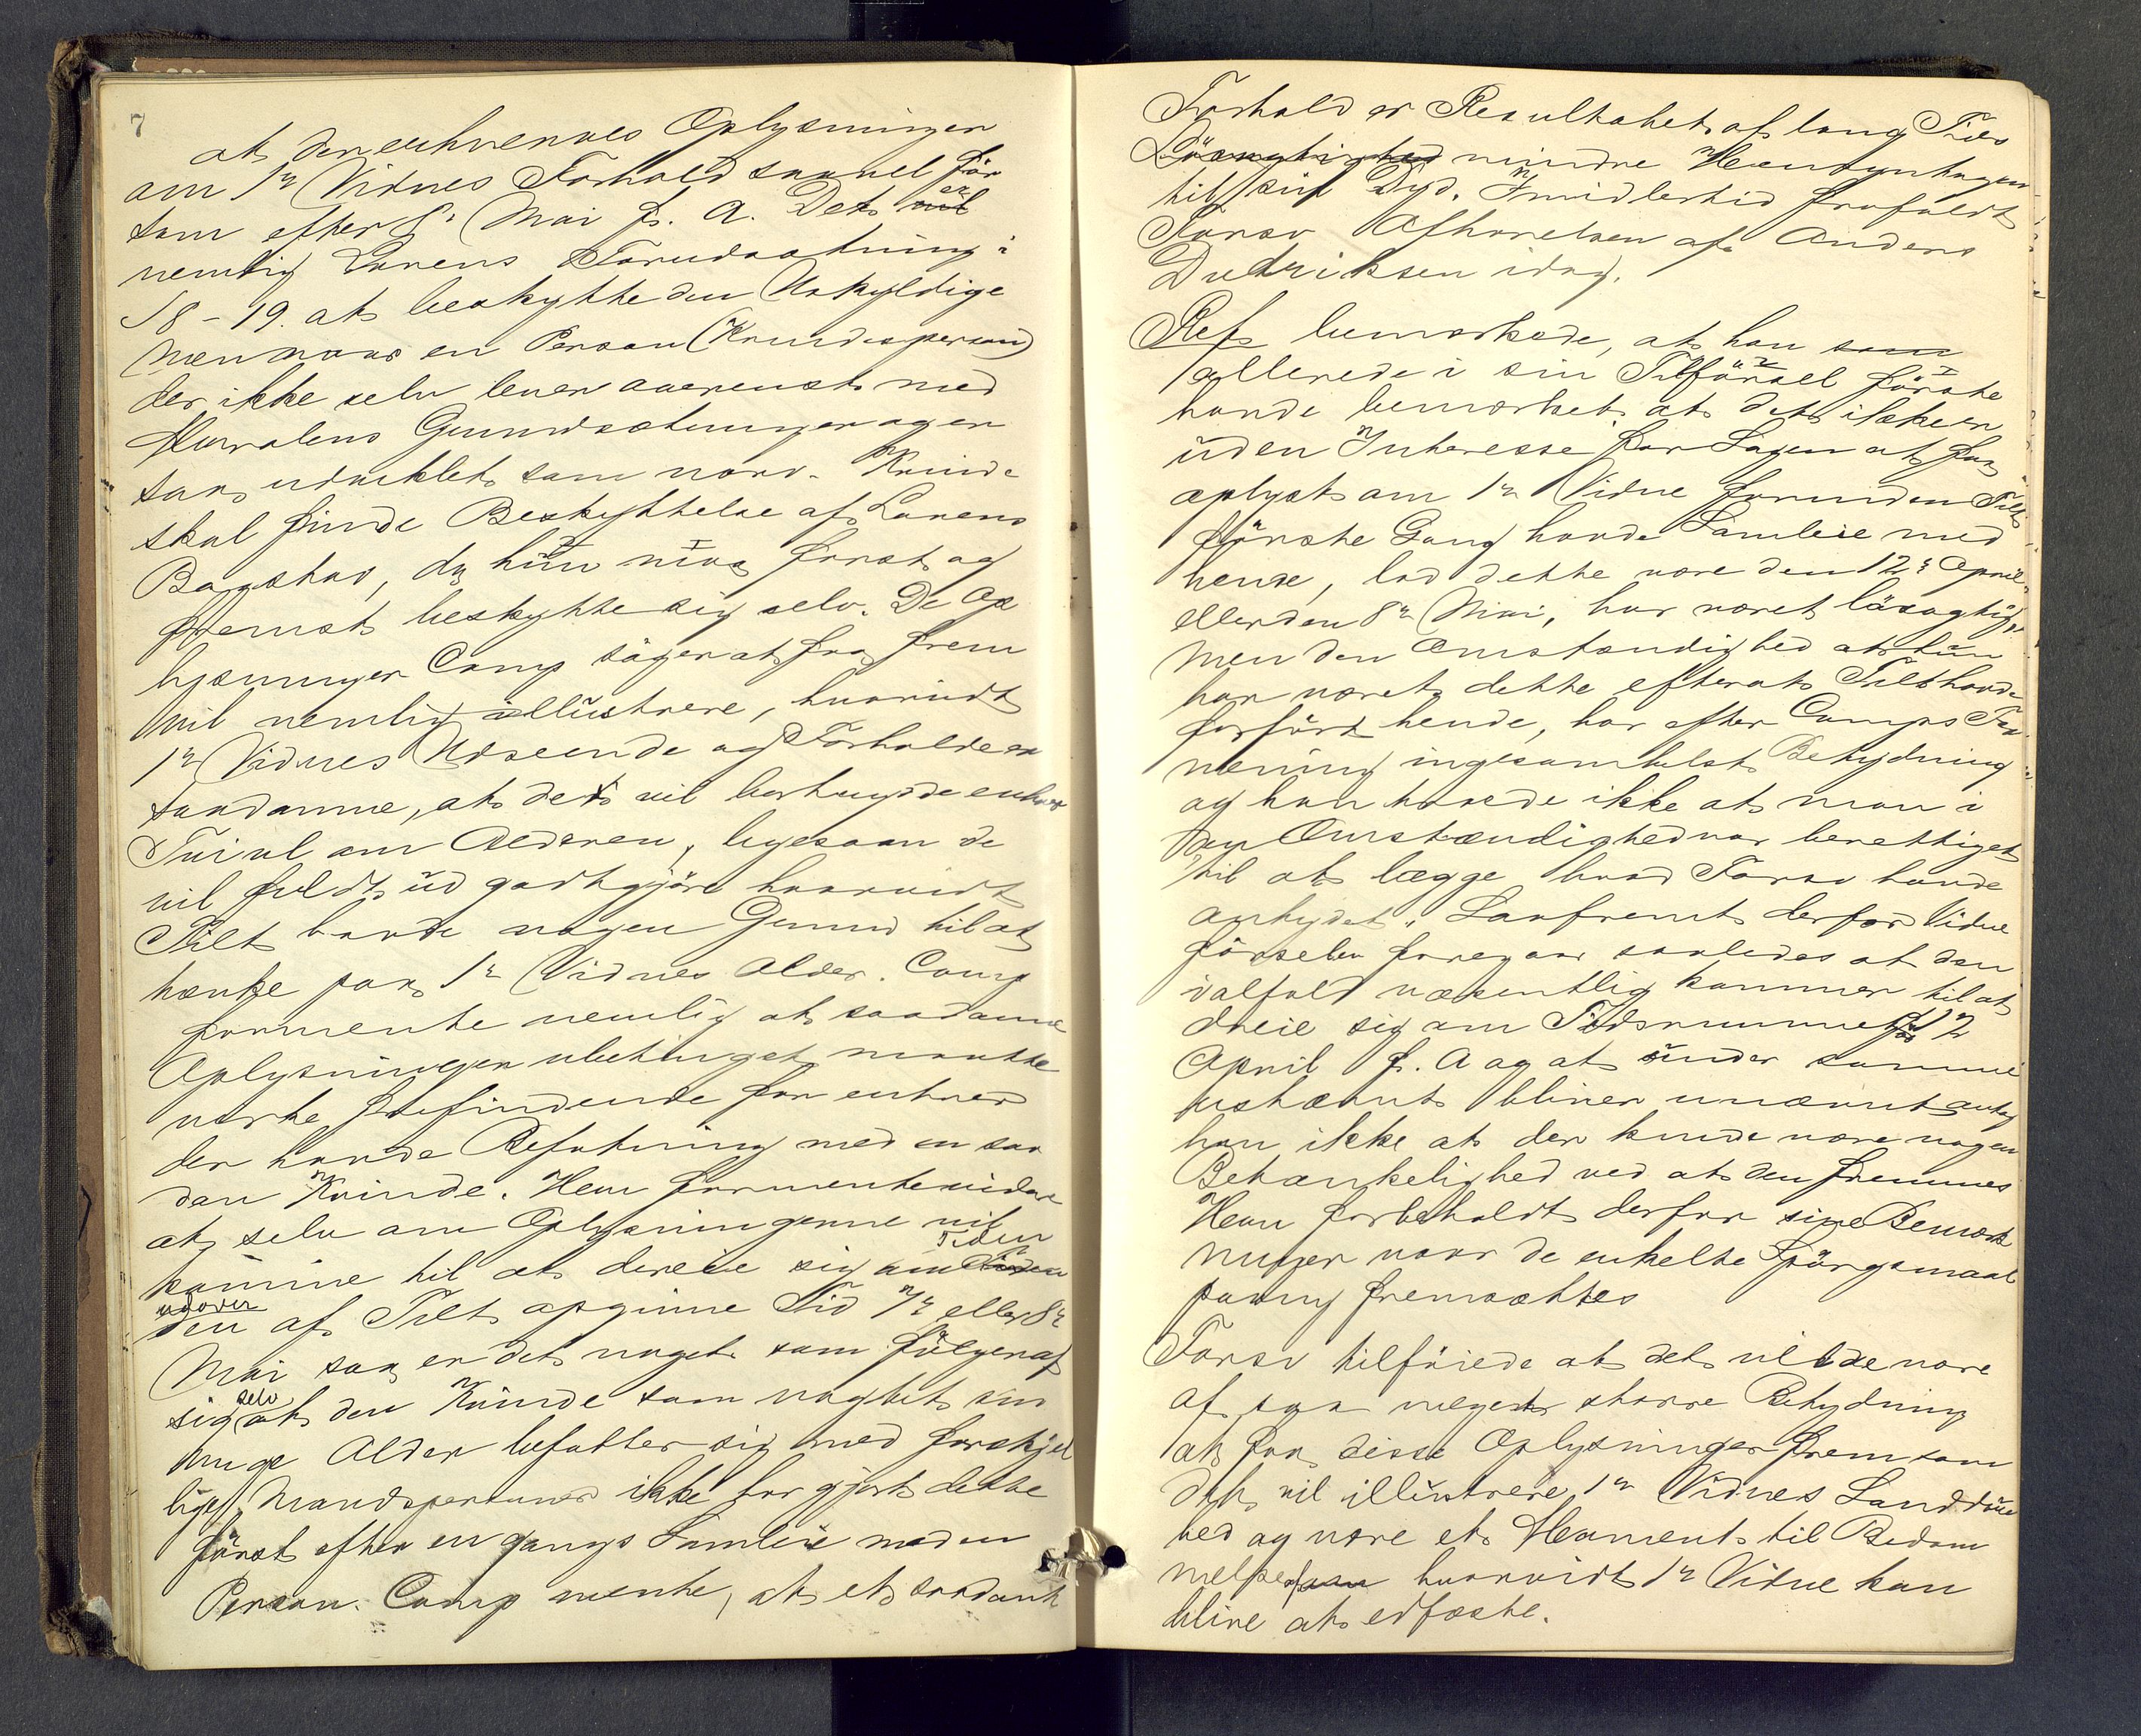 7
at der erhverves Oplysninger
om 1ste Vidnes Forhold saavel för
som efter 8de Mai f. A. Det er
nemlig Lovens Forudsætning i
18-19. at beskytte den Uskyldige
men naar en Person (Kvindesperson)
der ikke selv lever overenst. med
Moralens Grundsætninger og er
saa udviklet som nærv. Kvinde
skal finde Beskyttelse af Lovens
Bogstav, da hun maa först og
fremst beskytte sig selv. De Op
lysninger Comp söger at faa frem
vil nemlig illustrere, hvorvidt
1ste Vidnes Udseende og Forhold er
saadanne, at det vil borttage enhver
Tvivl om Alderen, ligesom de
vil fuldt ud godtgjöre hvorvidt
Tilt havde nogen Grund til at
tænke paa 1ste Vidnes Alder. Comp
formente nemlig at saadanne
Oplysninger ubetinget maatte
være frifindende for enhver
der havde Befatning med en saa
dan Kvinde. Han formente videre
at selv om Oplysningerne vil
komme til at dreie sig om Tiden
udover
den af Tilt opgivne Tid 7de eller 8de
Mai saa er det noget som fölger af
sig selv at den Kvinde som uagtet sin
unge Alder befatter sig med forskjel
lige Mandspersoner ikke har gjort dette
först efter en gangs Samleie med en
Person. Comp mente, at et saadant
Forhold er Resultatet af lang Tids
Lösagtighed mindre Hensyntagen
til sin Dyd. Imidlertid frafaldt
Forsv Afhörelsen af Anders
Didriksen idag.
Refs bemærkede, at han som
allerede i sin Tilförsel första
havde bemærket at det ikke er
uden Interesse for Sagen at faa
oplyst om 1ste Vidne forinden Tilt
förste Gang havde Samleie med
hende, lad dette være den 12te April
eller den 8de Mai, har været lösagtig
men den Omstændighed at hun
har været dette efterat Tilt havde
forfört hende, har efter Comps For
mening ingesomhelst Betydning
og han troede ikke at man i
den Omstændighed var berettiget
til at lægge, hvad Forsv havde
antydet. Saafremt derfor Vidne
förselen foregaar saaledes at den
ialfald væsentlig kommer til at
dreie sig om Tidsrummet för 12
April f. A og at under samme
ustævnt bliver unævnt antog
han ikke at der kunde være nogen
Betænkelighed ved at den fremmes
Han forbeholdt derfor sine Bemærk
ninger naar de enkelte Spörgsmaal
paany fremsættes
Forsv tilföiede at det vilde være
af saa meget större Betydning
at faa disse Oplysninger frem som
det vil illustrere 1ste Vidnes Sanddru
hed og være et Moment til Bedöm
melse af hvorvidt 1ste Vidne kan
blive at edfæste.